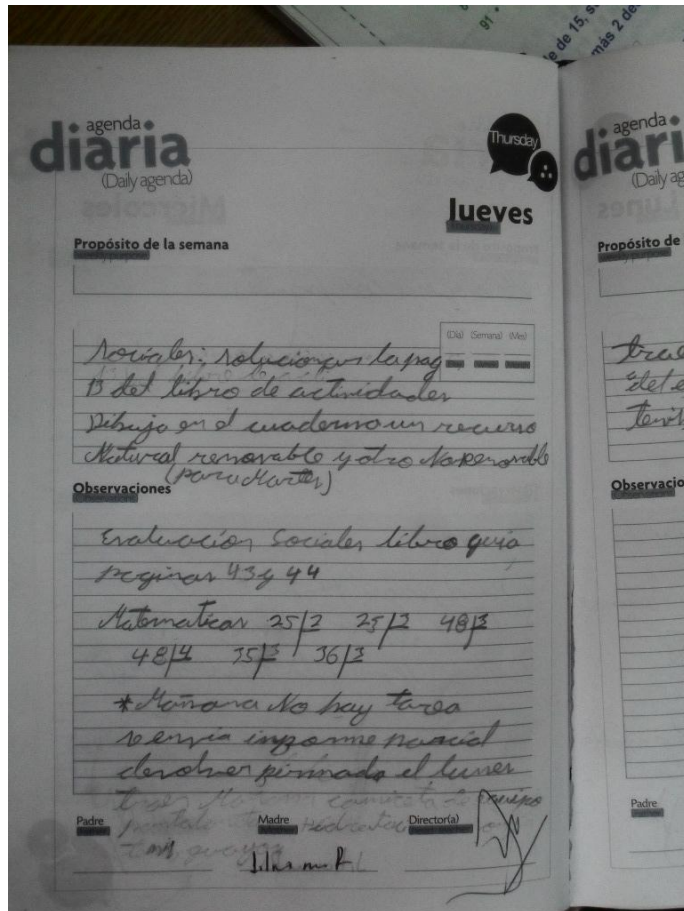 91 •
e de 15, s
más 2 de
agenda
diaria
(Daily agenda)
Thursday
Jueves
Propósito de la semana
(Día) (Semana) (Mes)
Sociales: solucionamos la pag
13 del libro de actividades
Dibujo en el cuaderno un recurso
Natural renovable y otro No renovable
(para Martes)
Observaciones
Evaluación Sociales libro guia
paginas 43 y 44
Matematicas 25|2 25|3 48|3
48|4 35|3 36|3
*Mañana No hay tarea
se envia informe parcial
devolver firmado el lunes
traer camiseta de equipo
Padre
Madre
Director(a)
agenda
diari
(Daily ag
Propósito de
Observacio
Padre